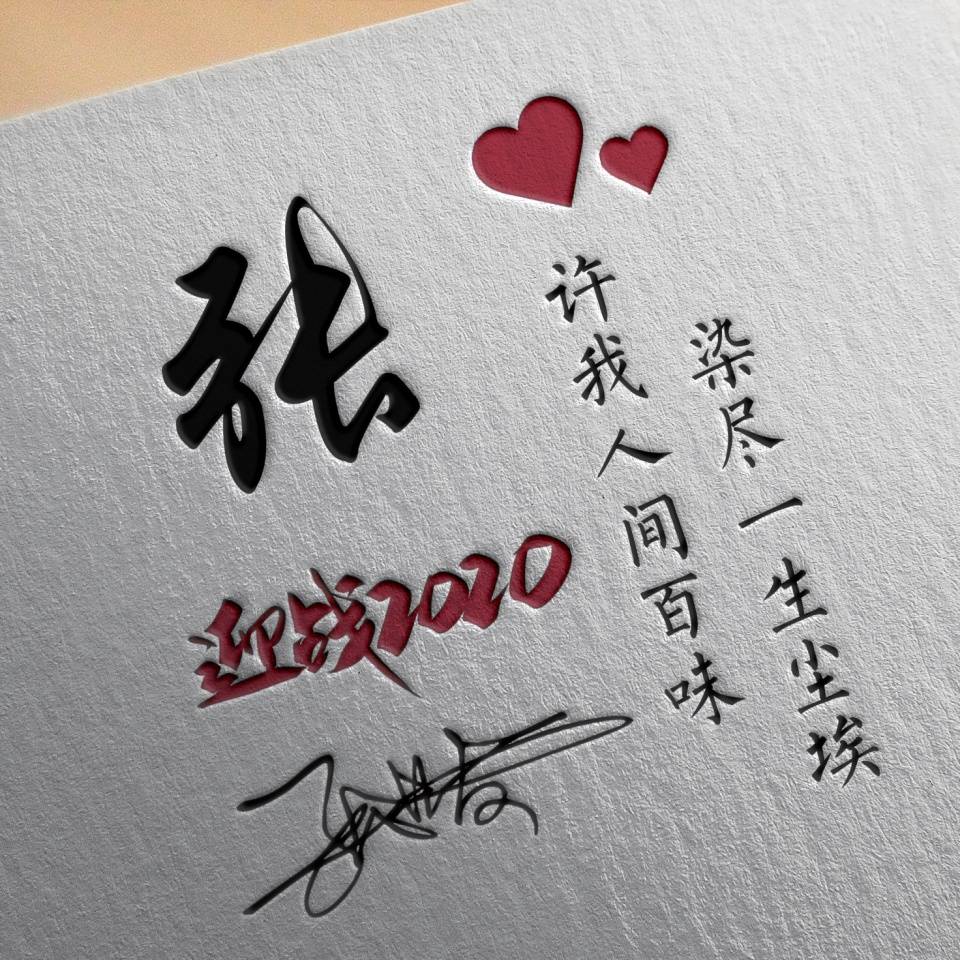 张
许我人间百味
染尽一生尘埃
迎战2020